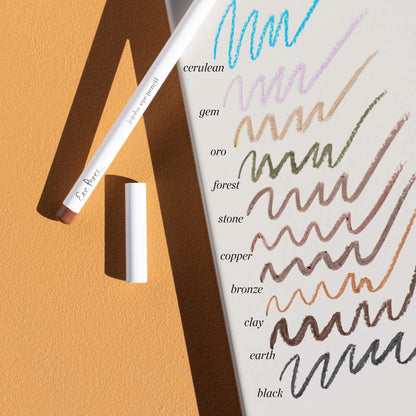 Ere Perez
jojoba eye pencil
cerulean
gem
oro
forest
stone
copper
bronze
clay
earth
black